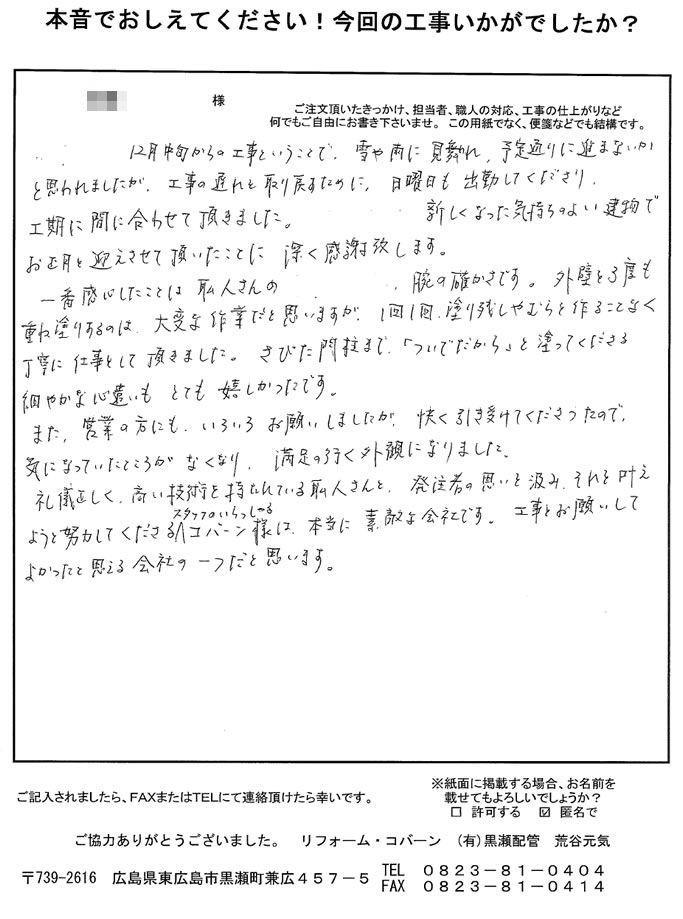 本音でおしえてください！今回の工事いかがでしたか？
様
ご注文頂いたきっかけ、担当者、職人の対応、工事の仕上がりなど
何でもご自由にお書き下さいませ。この用紙でなく、便箋などでも結構です。
12月中旬からの工事ということで、雪や雨に見舞れ、予定通りに進まないか
と思われましたが、工事の遅れを取り戻すために、日曜日も出勤してくださり、
工期に間に合わせて頂きました。 新しくなった気持ちのよい建物で
お正月を迎えさせて頂いたことに深く感謝致します。
一番感心したことは職人さんの 腕の確かさです。外壁を3度も
重ね塗りするのは、大変な作業だと思いますが、1回1回、塗り残しやむらを作ることなく
丁寧に仕事をして頂きました。さびた門柱まで、「ついでだから」と塗ってくださる
細やかな心遣いもとても嬉しかったです。
また、営業の方にも、いろいろお願いしましたが、快く引き受けてくださったので、
気になっていたところがなくなり、満足の行く外観になりました。
礼儀正しく、高い技術を持たれている職人さんと、発注者の思いを汲み、それを叶え
ようと努力してくださるスタッフのいらっしゃるコバーン様は、本当に素敵な会社です。工事をお願いして
よかったと思える会社の一つだと思います。
ご記入されましたら、FAXまたはTELにて連絡頂けたら幸いです。
※紙面に掲載する場合、お名前を
載せてもよろしいでしょうか？
□ 許可する ☑ 匿名で
ご協力ありがとうございました。 リフォーム・コバーン （有）黒瀬配管 荒谷元気
〒739-2616 広島県東広島市黒瀬町兼広４５７－５
TEL ０８２３－８１－０４０４
FAX ０８２３－８１－０４１４